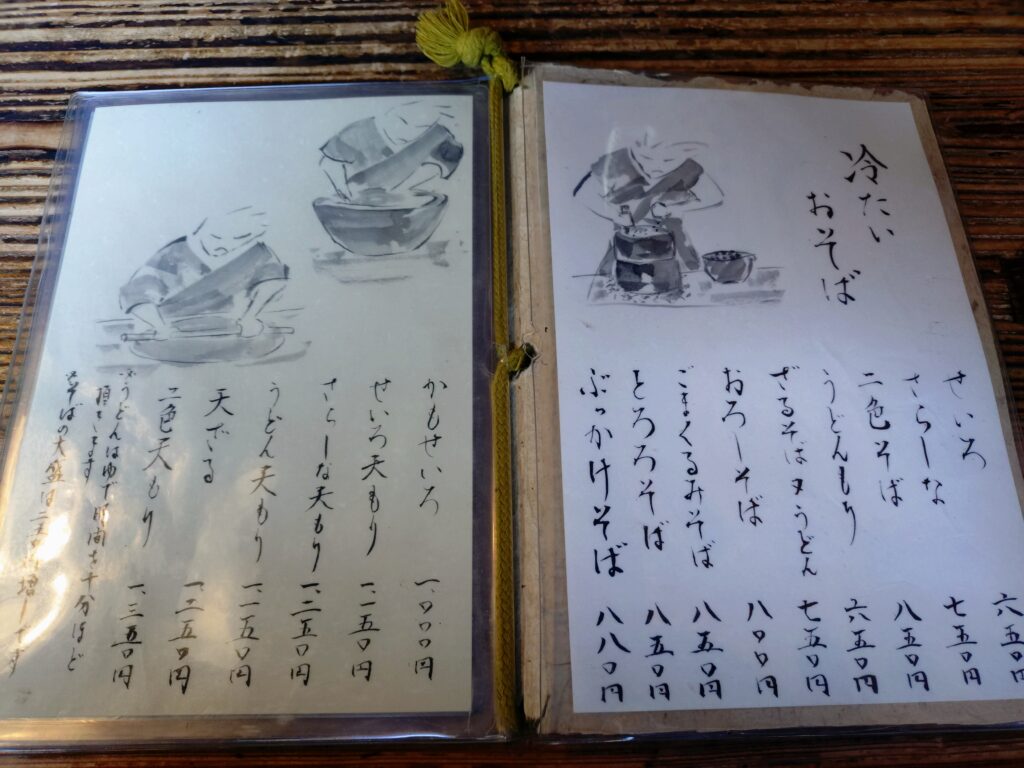 冷たい
おそば
せいろ 六五〇円
さらしな 七五〇円
二色そば 八五〇円
うどんもり 六五〇円
ざるそば又うどん 七五〇円
おろしそば 八〇〇円
ごまくるみそば 八五〇円
とろろそば 八五〇円
ぶっかけそば 八八〇円
かもせいろ 一、〇〇〇円
せいろ天もり 一、一五〇円
さらしな天もり 一、二五〇円
うどん天もり 一、一五〇円
天ざる 一、二五〇円
二色天もり 一、三五〇円
おうどんはゆで時間を十分ほど
頂きます
おそばの大盛は 増しです